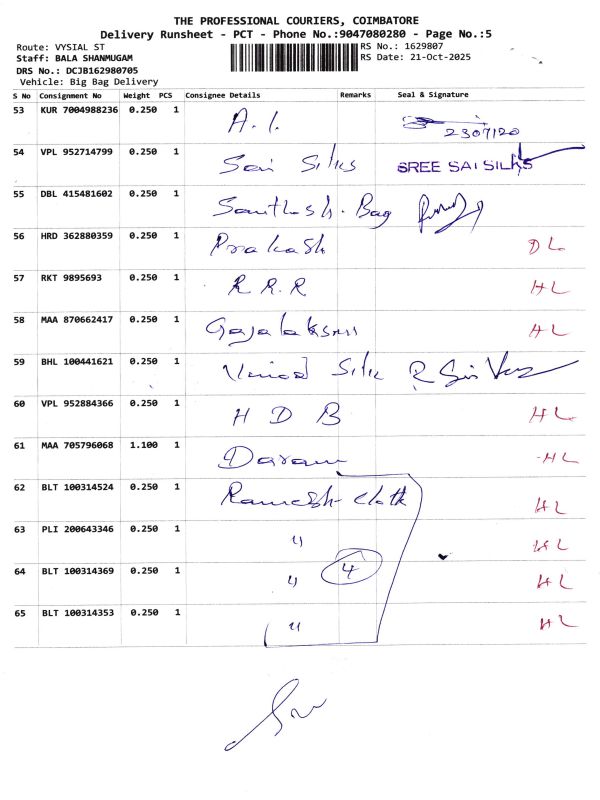 THE PROFESSIONAL COURIERS, COIMBATORE
Delivery Runsheet - PCT - Phone No.:9047080280 - Page No.:5
Route: VYSIAL ST RS No.: 1629807
Staff: BALA SHANMUGAM RS Date: 21-Oct-2025
DRS No.: DCJB162980705
Vehicle: Big Bag Delivery
S No Consignment No Weight PCS Consignee Details Remarks Seal & Signature
53 KUR 7004988236 0.250 1 A. I. 2307120
54 VPL 952714799 0.250 1 Sai Silks SREE SAI SILKS
55 DBL 415481602 0.250 1 Santhosh. Bag
56 HRD 362880359 0.250 1 Prakash DL
57 RKT 9895693 0.250 1 R.R.R HL
58 MAA 870662417 0.250 1 Gajalaksmi HL
59 BHL 100441621 0.250 1 Vinod Silk
60 VPL 952884366 0.250 1 H D B HL
61 MAA 705796068 1.100 1 HL
62 BLT 100314524 0.250 1 Ramesh cloth HL
63 PLI 200643346 0.250 1 " HL
64 BLT 100314369 0.250 1 " 4 HL
65 BLT 100314353 0.250 1 " HL